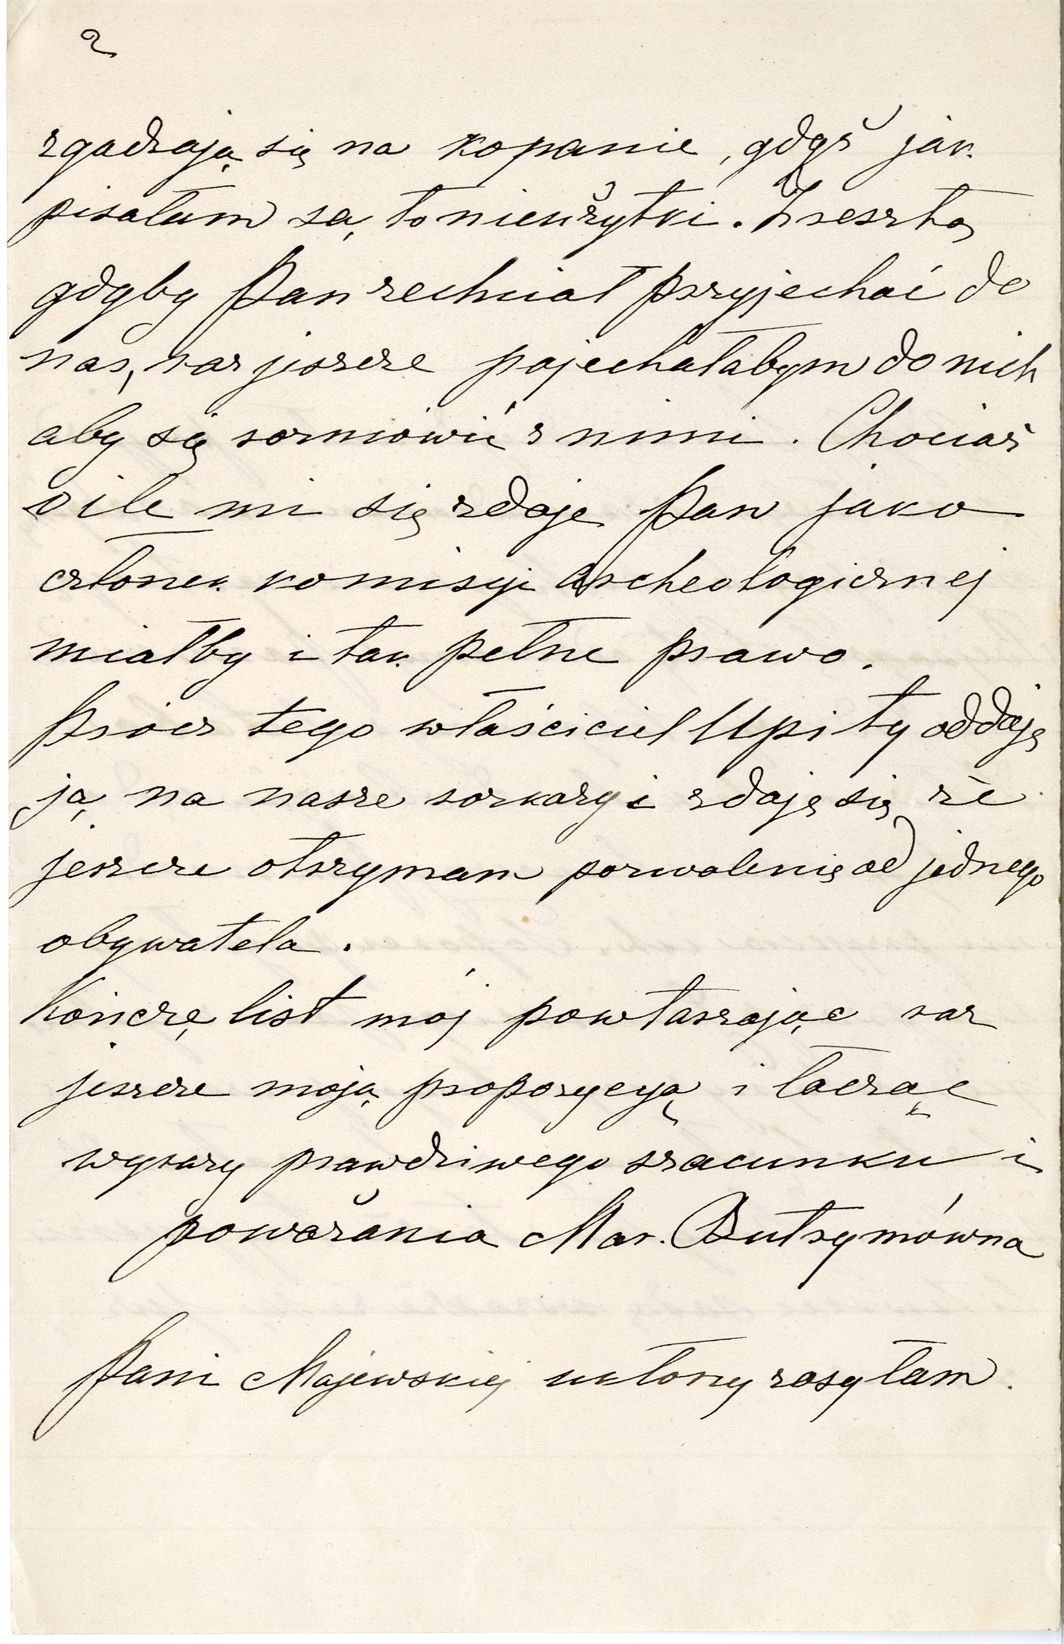 2
zgadzają się na kopanie, gdyż jak
pisałam są to nieużytki. Zresztą
gdyby Pan zechciał przyjechać do
nas, raz jeszcze pojechałabym do nich
aby się rozmówić z nimi. Chociaż
o ile mi się zdaje Pan jako
członek komisyi Archeologicznej
miałby i tak pełne prawo.
Prócz tego właściciel Upity oddaje
ją na nasze rozkazy i zdaje się że
jeszcze otrzymam pozwolenie od jednego
obywatela.
Kończę list mój powtarzając raz
jeszcze moją propozycyą i łącząc
wyrazy prawdziwego szacunku i
poważania Mar. Butrymówna
Pani Majewskiej ukłony zasyłam.